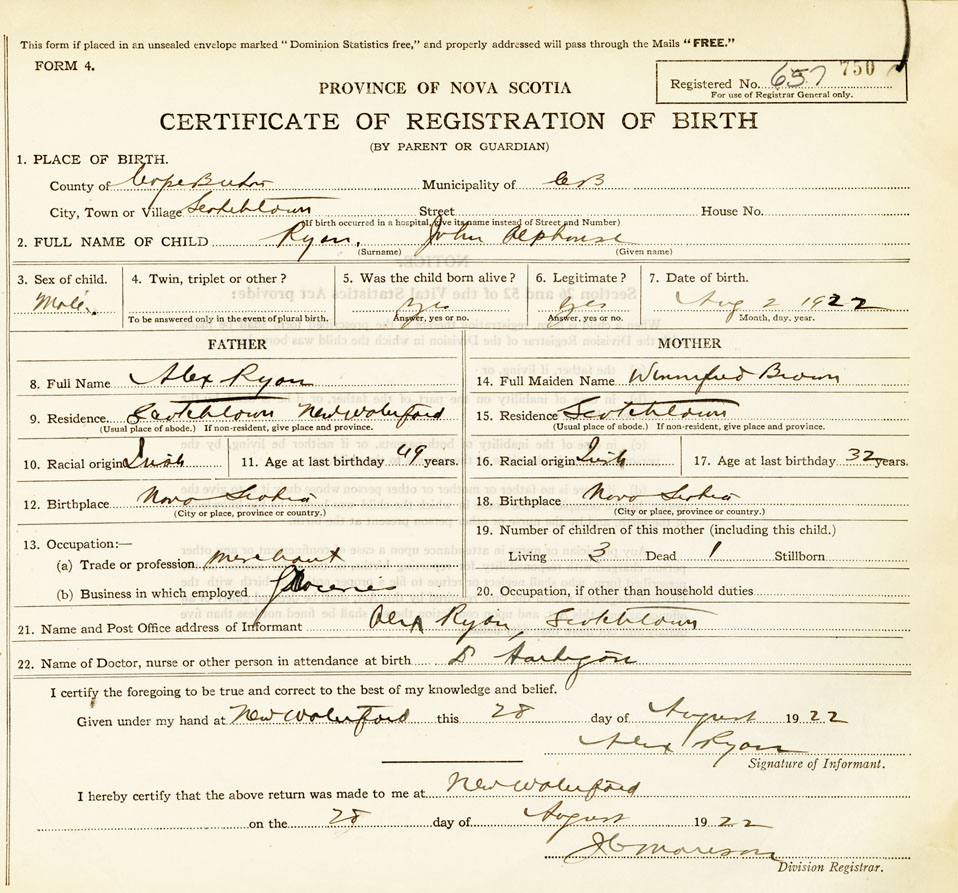 This form if placed in an unsealed envelope marked "Dominion Statistics free," and properly addressed will pass through the Mails "FREE."
FORM 4.
Registered No. 657 750
For use of Registrar General only.
PROVINCE OF NOVA SCOTIA
CERTIFICATE OF REGISTRATION OF BIRTH
(BY PARENT OR GUARDIAN)
1. PLACE OF BIRTH.
County of Cape Breton Municipality of CB
City, Town or Village Scotchtown Street House No.
(If birth occurred in a hospital, give its name instead of Street and Number)
2. FULL NAME OF CHILD Ryan, John Alphonse
(Surname) (Given name)
3. Sex of child. 4. Twin, triplet or other? 5. Was the child born alive? 6. Legitimate? 7. Date of birth.
Male. yes yes Aug 2 1922
To be answered only in the event of plural birth. Answer, yes or no. Answer, yes or no. Month, day, year.
FATHER MOTHER
8. Full Name Alex Ryan 14. Full Maiden Name Winnifred Brown
9. Residence Scotchtown New Waterford 15. Residence Scotchtown
(Usual place of abode.) If non-resident, give place and province. (Usual place of abode.) If non-resident, give place and province.
10. Racial origin Irish 11. Age at last birthday 49 years. 16. Racial origin Irish 17. Age at last birthday 32 years.
12. Birthplace Nova Scotia 18. Birthplace Nova Scotia
(City or place, province or country.) (City or place, province or country.)
13. Occupation:— 19. Number of children of this mother (including this child.)
(a) Trade or profession merchant Living 3 Dead 1 Stillborn
(b) Business in which employed Groceries 20. Occupation, if other than household duties
21. Name and Post Office address of Informant Alex Ryan, Scotchtown
22. Name of Doctor, nurse or other person in attendance at birth Dr
I certify the foregoing to be true and correct to the best of my knowledge and belief.
Given under my hand at New Waterford this 28 day of August 1922
Alex Ryan
Signature of Informant.
I hereby certify that the above return was made to me at New Waterford
on the 28 day of August 1922
Division Registrar.